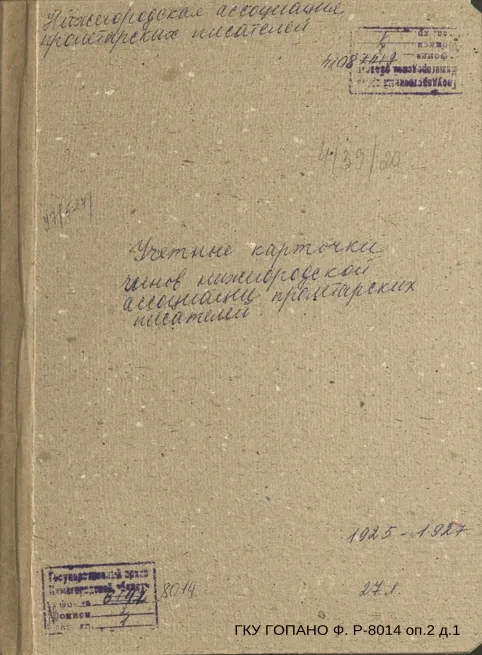 Нижегородская ассоциация
пролетарских писателей
4/39/20
Учетные карточки
членов нижегородской
ассоциации пролетарских
писателей.
1925-1927
Государственный архив
Нижегородской области
фонда
описи 2
1
8014
27 л.
ГКУ ГОПАНО Ф. Р-8014 оп.2 д.1